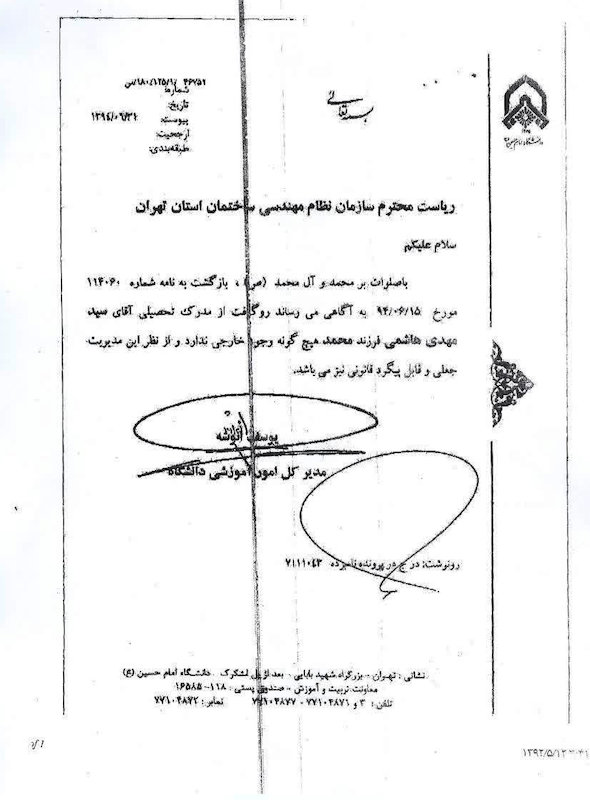 بسمه تعالی
۴۶۷۵۹ /۱۸۰/۱۲۵/۱/س
شماره:
تاریخ:
پیوست: ۱۳۹۴/۰۶/۳۱
ارجحیت:
طبقه‌بندی:
ریاست محترم سازمان نظام مهندسی ساختمان استان تهران
سلام علیکم
باصلوات بر محمد و آل محمد (ص) ، بازگشت به نامه شماره ۱۱۴۰۶۰
مورخ ۹۴/۰۶/۱۵ به آگاهی می رساند روگرفت از مدرک تحصیلی آقای سید
مهدی هاشمی فرزند محمد هیچ گونه وجود خارجی ندارد و از نظر این مدیریت
جعلی و قابل پیگرد قانونی نیز می باشد.
یوسف انوشه
مدیر کل امور آموزشی دانشگاه
رونوشت: درج در پرونده نامبرده ۷۱۱۱۰۴۳
نشانی : تهران - بزرگراه شهید بابایی - بعد از پل لشگرک . دانشگاه امام حسین (ع)
معاونت تربیت و آموزش - صندوق پستی : ۱۱۸-۱۶۵۸۵
تلفن : ۳ و ۷۷۱۰۴۸۷۱ - ۷۷۱۰۴۸۷۷ نمابر : ۷۷۱۰۴۸۷۲